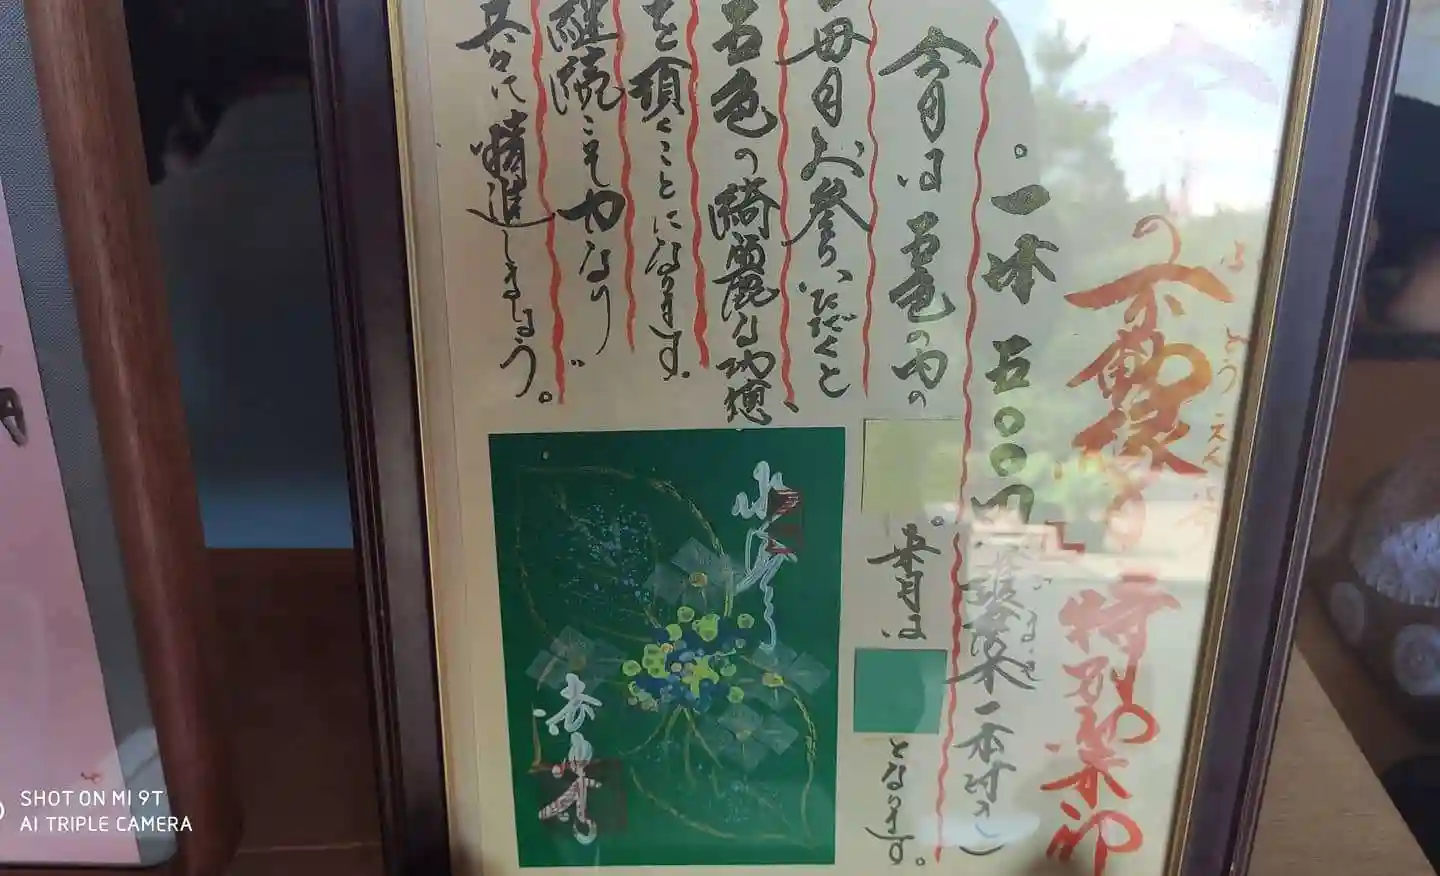 の不動縁日特別朱印
ふどうえん
・一体 五〇〇円
護摩木一本付き)
今月は五色の内の
。来月は
となります。
毎月お参りいただくと
五色の綺麗な功徳、
を頂くことになります。
継続こそ力なり
共々に精進しましょう。
SHOT ON MI 9T
AI TRIPLE CAMERA